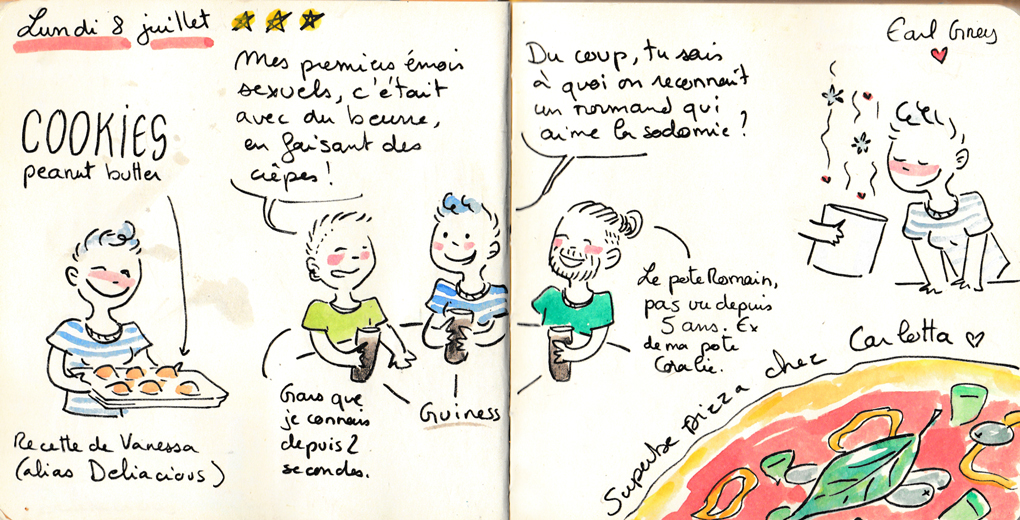 Lundi 8 juillet
COOKIES
peanut butter
Recette de Vanessa
(alias Deliacious)
Mes premiers émois
sexuels, c'était
avec du beurre,
en faisant des
crêpes !
Gars que
je connais
depuis 2
secondes.
Guiness
Du coup, tu sais
à quoi on reconnait
un normand qui
aime la sodomie ?
Le pote Romain,
pas vu depuis
5 ans. Ex
de ma pote
Coralie.
Earl Grey
Superbe pizza chez Carlotta